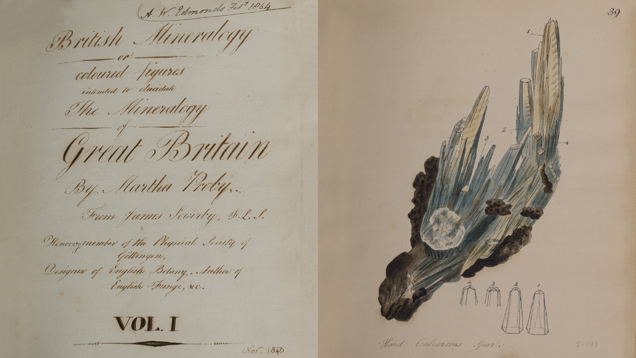 A. W. Edmonds Feb 1864
British Mineralogy
or
coloured figures
intended to elucidate
The Mineralogy
of
Great Britain
By Martha Proby.
From James Sowerby, F.L.S.
Honorary member of the Physical Society of
Gottingen,
Designer of English Botany, Author of
English Fungi, &c.
VOL. I
Nov. 1840
39
Hard Calcareous Spar.